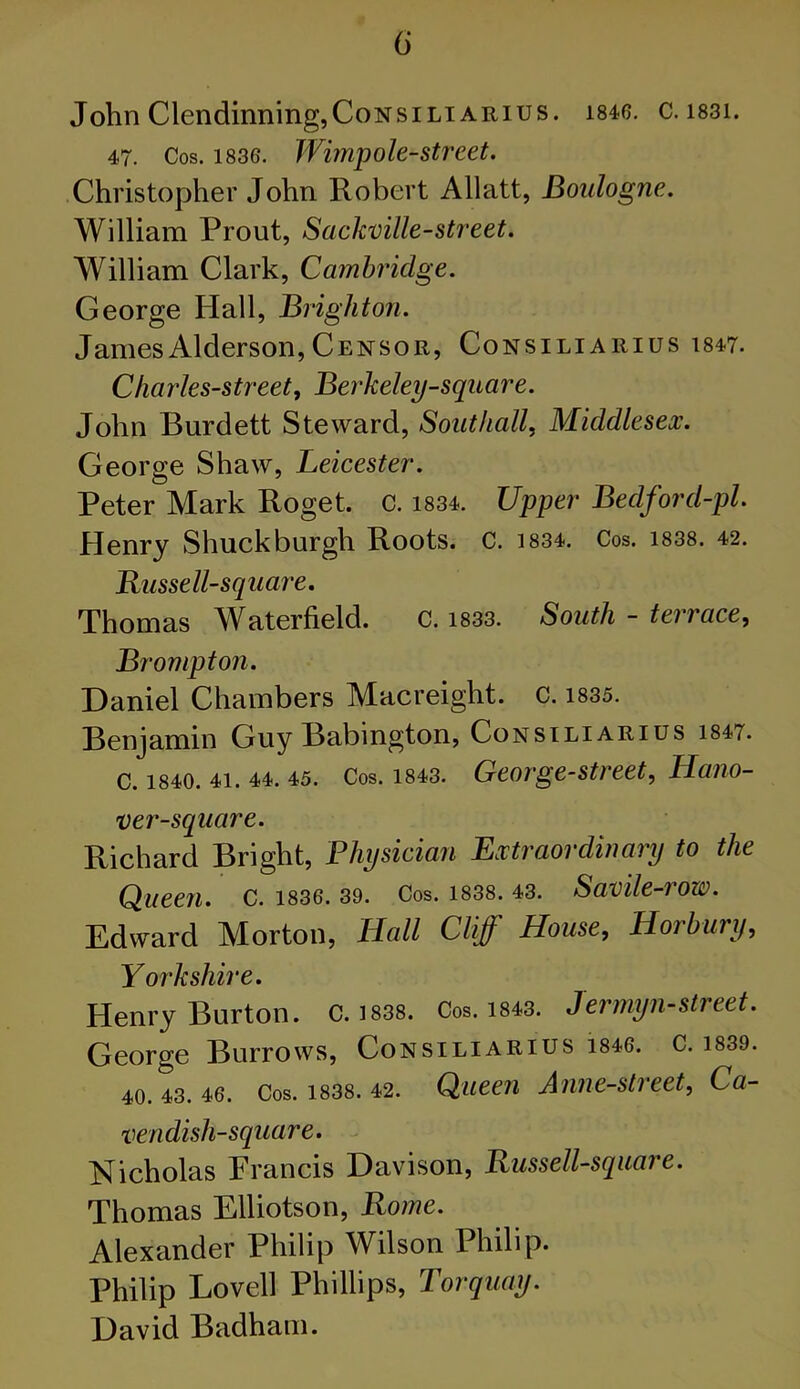 6
John Clendinning, CONSILIARIUS. 1846. C. 1831.
47. Cos. 1836. Wimpole-street.
Christopher John Robert Allatt, Boulogne.
William Prout, Sackville-street.
William Clark, Cambridge.
George Hall, Brighton.
James Alderson, CENSOR, CONSILIARIUS 1847.
Charles-street, Berkeley-square.
John Burdett Steward, Southall, Middlesex.
George Shaw, Leicester.
Peter Mark Roget. C. 1834. Upper Bedford-pl.
Henry Shuckburgh Roots. C. 1834. Cos. 1838. 42.
Russell-square.
Thomas Waterfield. C. 1833. South - terrace,
Brompton.
Daniel Chambers Macreight. C. 1835.
Benjamin Guy Babington, CONSILIARIUS 1847.
C. 1840. 41. 44. 45. Cos. 1843. George-street, Hano-
ver-square.
Richard Bright, Physician Extraordinary to the
Queen. C. 1836. 39. Cos. 1838. 43. Savile-row.
Edward Morton, Hall Cliff House, Horbury,
Yorkshire.
Henry Burton. C. 1838. Cos. 1843. Jermyn-street.
George Burrows, CONSILIARIUS 1846. C. 1839.
40. 43. 46. Cos. 1838. 42. Queen Anne-street, Ca-
vendish-square.
Nicholas Francis Davison, Russell-square.
Thomas Elliotson, Rome.
Alexander Philip Wilson Philip.
Philip Lovell Phillips, Torquay.
David Badham.